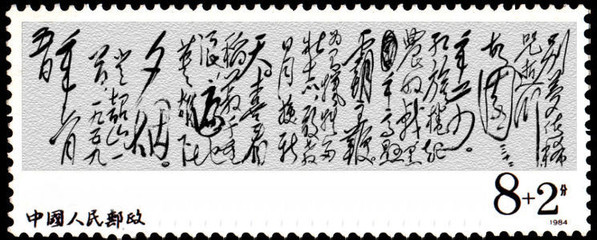 别梦依稀
咒逝川
故园三十
红旗捲起
農奴戟黑
手高悬
霸主鞭
为有牺牲多
壮志敢教
日月换新
天喜看
稻菽千重
浪
英雄下
夕烟
登韶山一
首一九五九
年
8+2分
1984
中國人民郵政